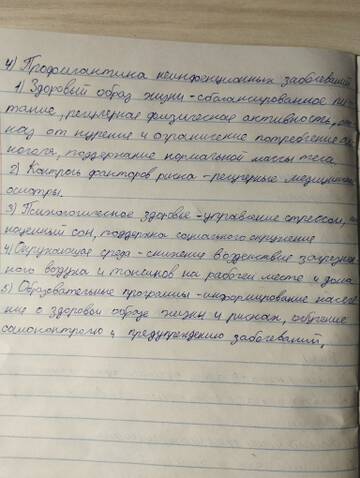 4) Профилактика неинфекционных заболеваний
1) Здоровый образ жизни - сбалансированное пи-
тание, регулярная физическая активность,
каз от курения и ограничение потребление
коголя, поддержание нормальной массы тела
2) Контроль факторов риска - регулярные медицинские
осмотры.
3) Психологическое здоровье - управление стрессом,
ноценный сон, поддержка социального окружения
4) Окружающая среда - снижение воздействие загрязнен-
ного воздуха и токсинов на рабочем месте и дома
5) Образовательные программы - информирование населе-
ние о здоровом образе жизни и рисках, обучение
самоконтролю и предупреждению заболеваний.